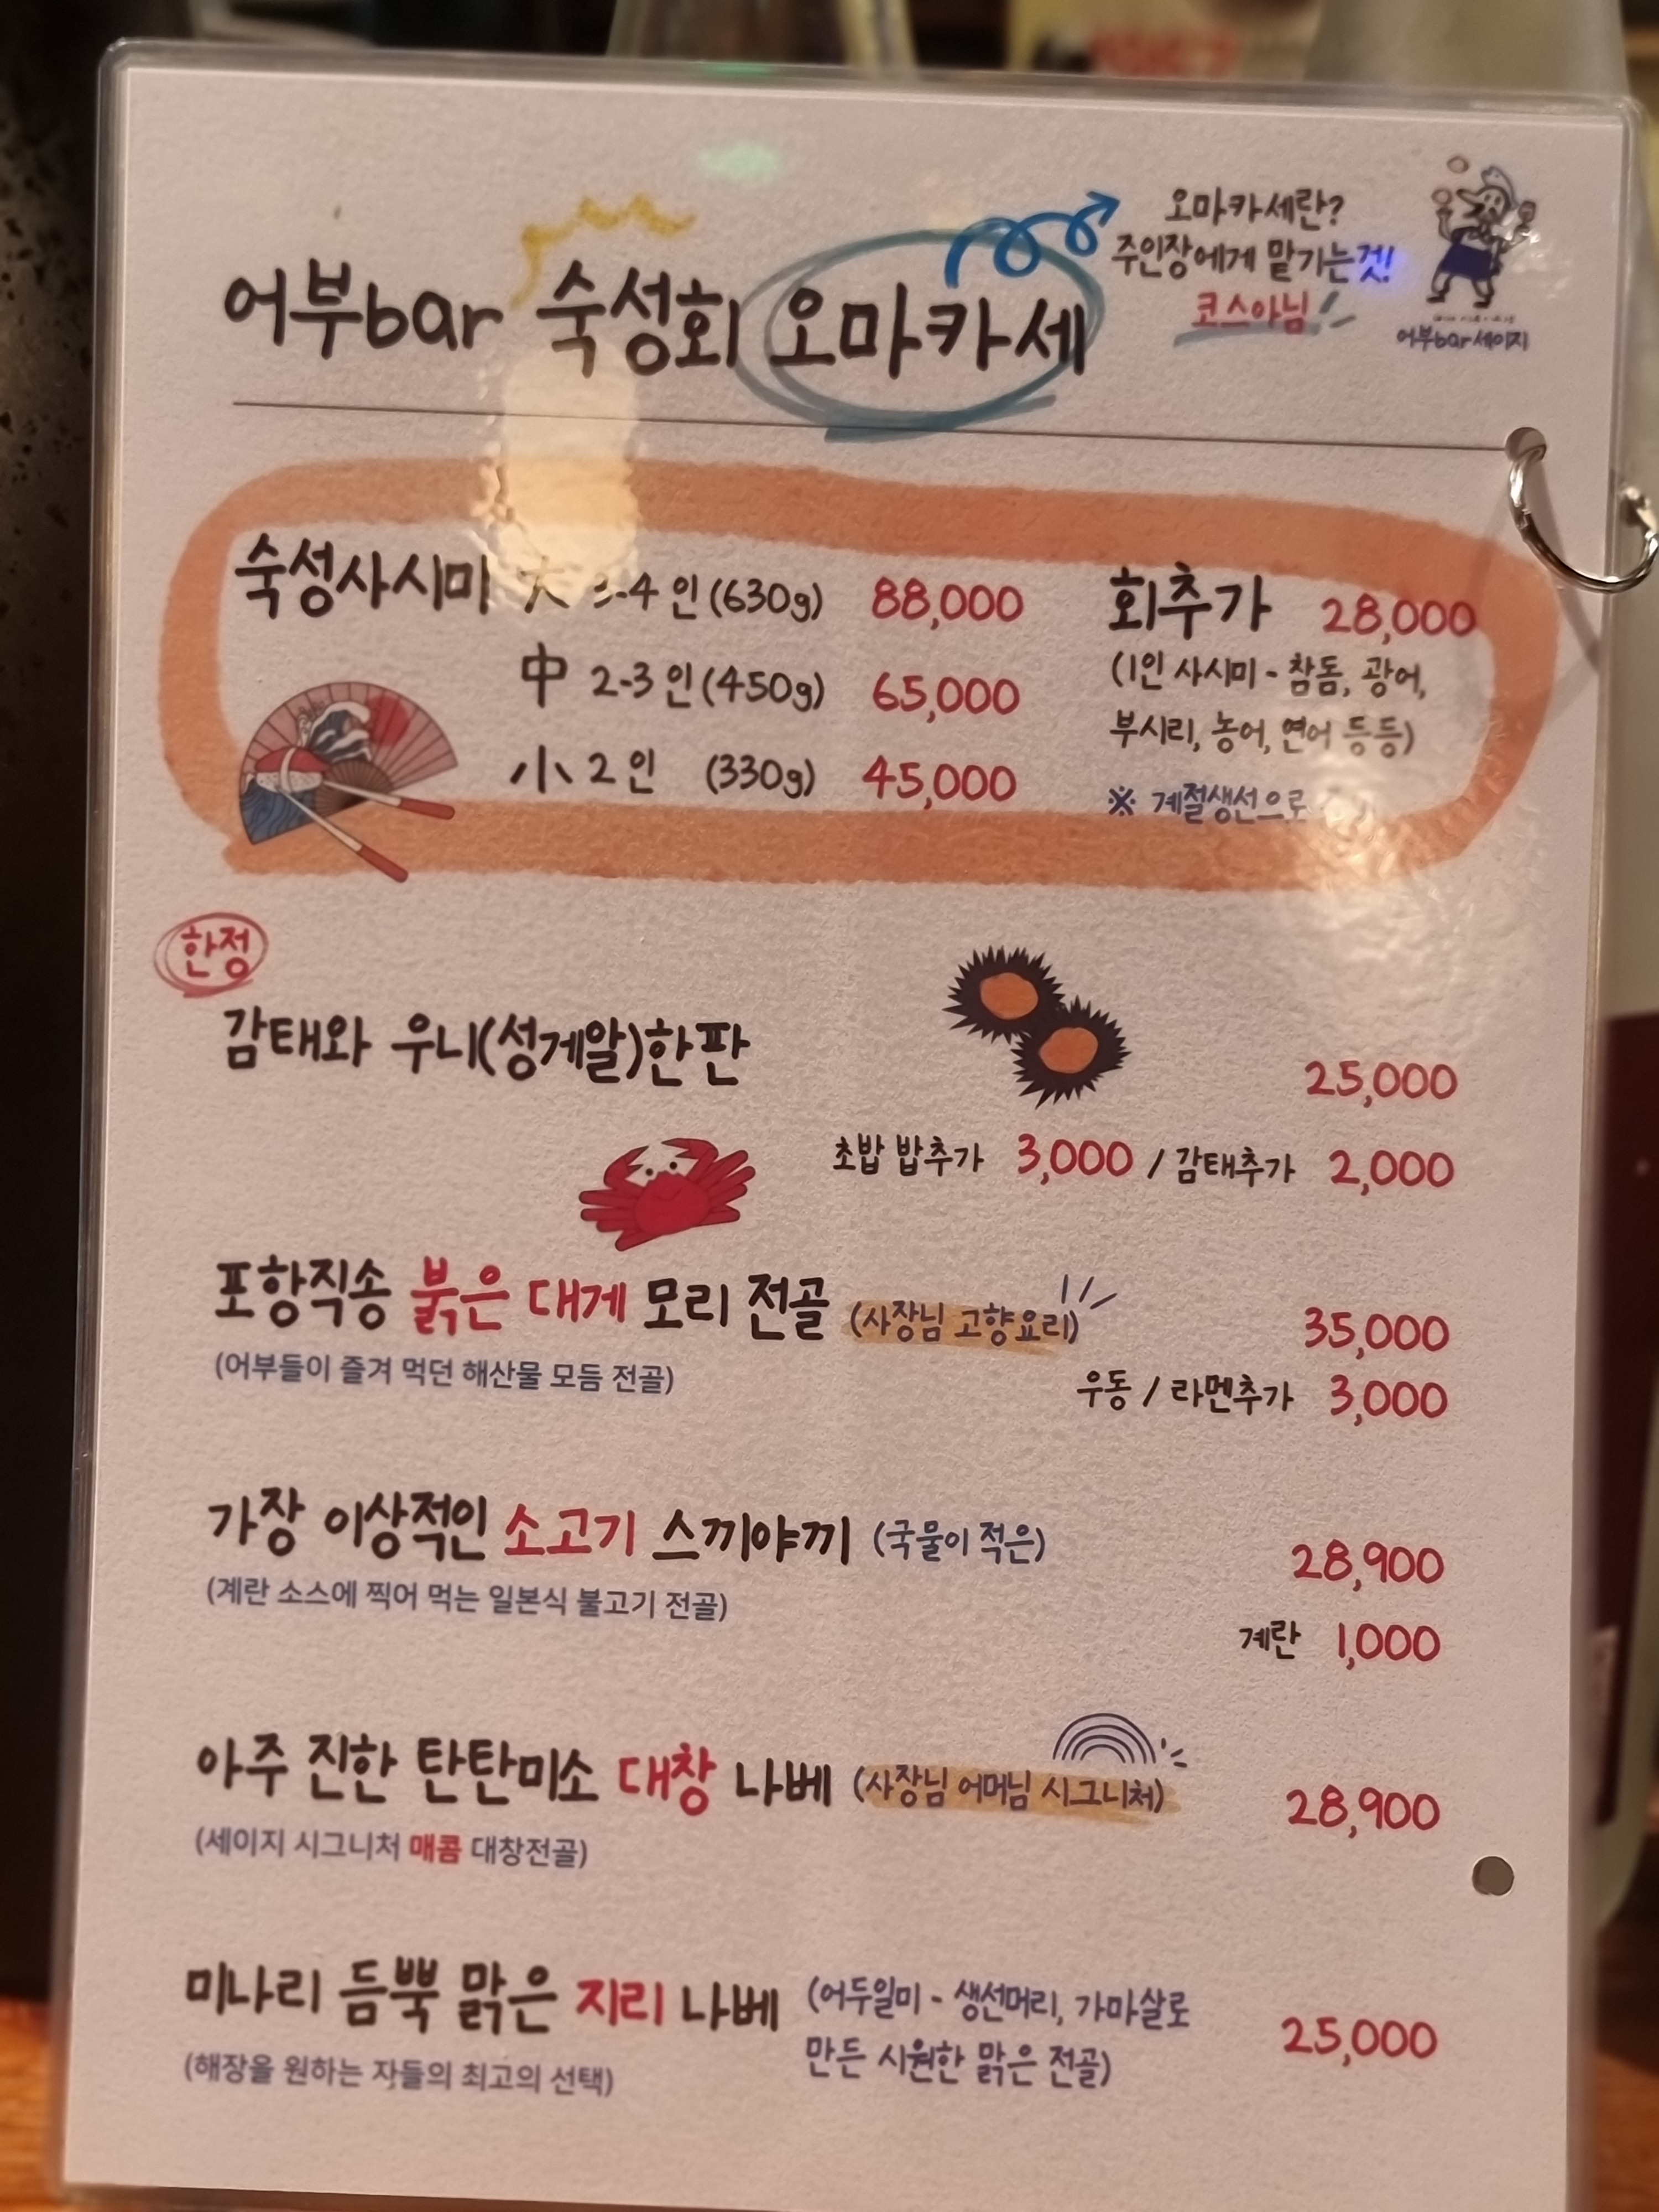 오마카세란?
주인장에게 맡기는것!
코스아님
어부bar세이지
어부bar 숙성회 오마카세
숙성사시미 大 3-4인 (630g) 88,000
中 2-3인 (450g) 65,000
小 2인 (330g) 45,000
회추가 28,000
(1인 사시미 - 참돔, 광어,
부시리, 농어, 연어 등등)
※ 계절생선으로
한정
감태와 우니(성게알)한판 25,000
초밥 밥추가 3,000 / 감태추가 2,000
포항직송 붉은 대게 모리 전골 (사장님 고향요리) 35,000
(어부들이 즐겨 먹던 해산물 모듬 전골)
우동 / 라멘추가 3,000
가장 이상적인 소고기 스끼야끼 (국물이 적은) 28,900
(계란 소스에 찍어 먹는 일본식 불고기 전골)
계란 1,000
아주 진한 탄탄미소 대창 나베 (사장님 어머님 시그니처) 28,900
(세이지 시그니처 매콤 대창전골)
미나리 듬뿍 맑은 지리 나베 (어두일미 - 생선머리, 가마살로
만든 시원한 맑은 전골) 25,000
(해장을 원하는 자들의 최고의 선택)